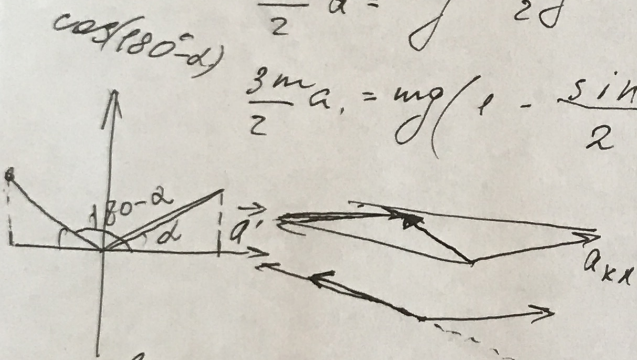 cos(180°-α)
3m/2 a₁ = mg(1 - sin/2
180-α
α
a'
aкл